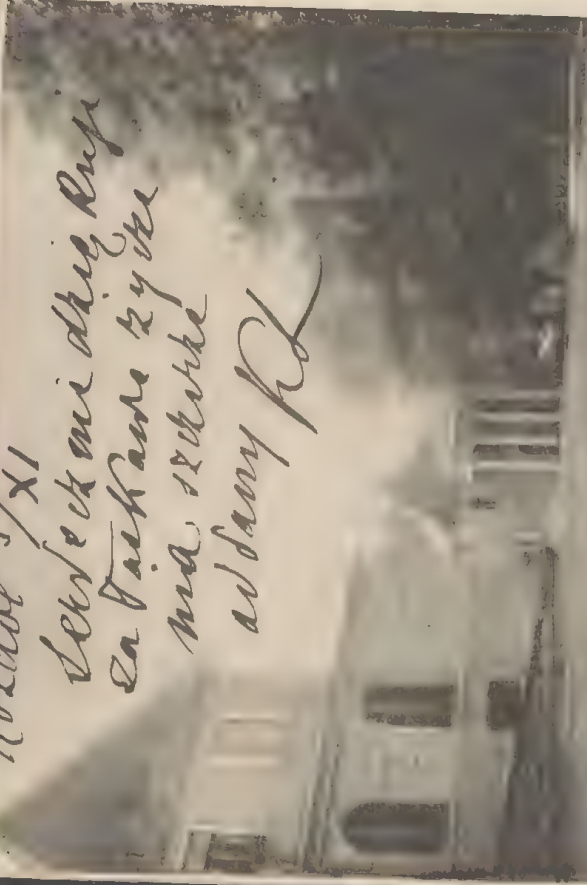 5/XI
Serdecznie dziękuję
za łaskawe życze
nia, szczerze
oddany